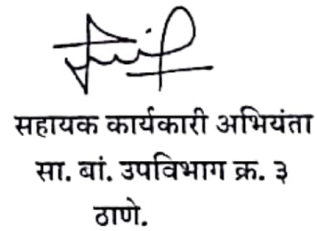 सहायक कार्यकारी अभियंता
सा. बां. उपविभाग क्र. ३
ठाणे.